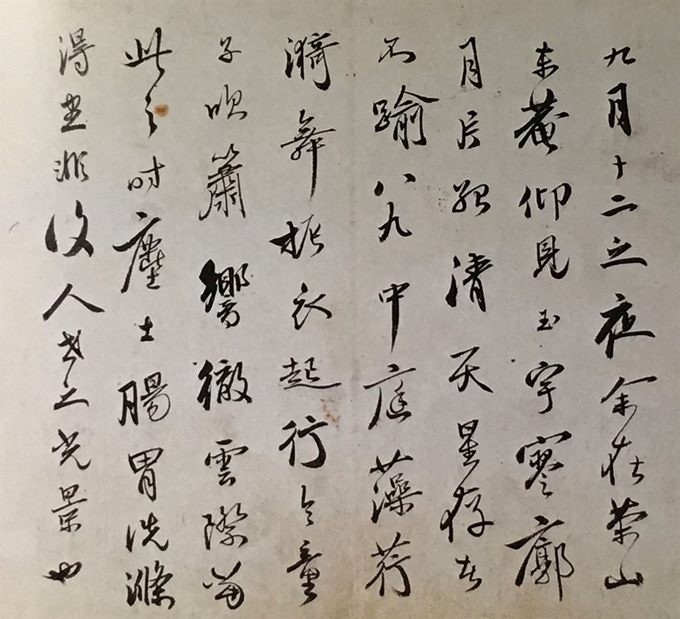 九月十二之夜余在茶山
東菴仰見玉宇寥廓
月片孤清天星存者
不踰八九中庭藻荇
漪舞振衣起行令童
子吹簫響徹雲際當
此之時塵土腸胃洗滌
得盡非復人世之光景也